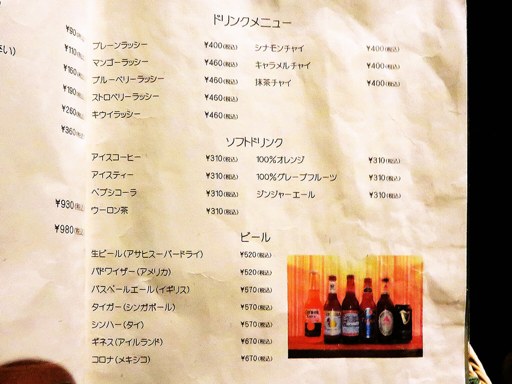 ドリンクメニュー
プレーンラッシー ¥400(税込) シナモンチャイ ¥400(税込)
マンゴーラッシー ¥460(税込) キャラメルチャイ ¥400(税込)
ブルーベリーラッシー ¥460(税込) 抹茶チャイ ¥400(税込)
ストロベリーラッシー ¥460(税込)
キウイラッシー ¥460(税込)
ソフトドリンク
アイスコーヒー ¥310(税込) 100%オレンジ ¥310(税込)
アイスティー ¥310(税込) 100%グレープフルーツ ¥310(税込)
ペプシコーラ ¥310(税込) ジンジャーエール ¥310(税込)
ウーロン茶 ¥310(税込)
ビール
生ビール(アサヒスーパードライ) ¥520(税込)
バドワイザー(アメリカ) ¥520(税込)
バスペールエール(イギリス) ¥570(税込)
タイガー(シンガポール) ¥570(税込)
シンハー(タイ) ¥570(税込)
ギネス(アイルランド) ¥670(税込)
コロナ(メキシコ) ¥670(税込)
さい)
¥90(税込
¥110(税込
¥160(税込
¥190(税込
¥260(税込
¥360(税込
¥930(税込
¥980(税込